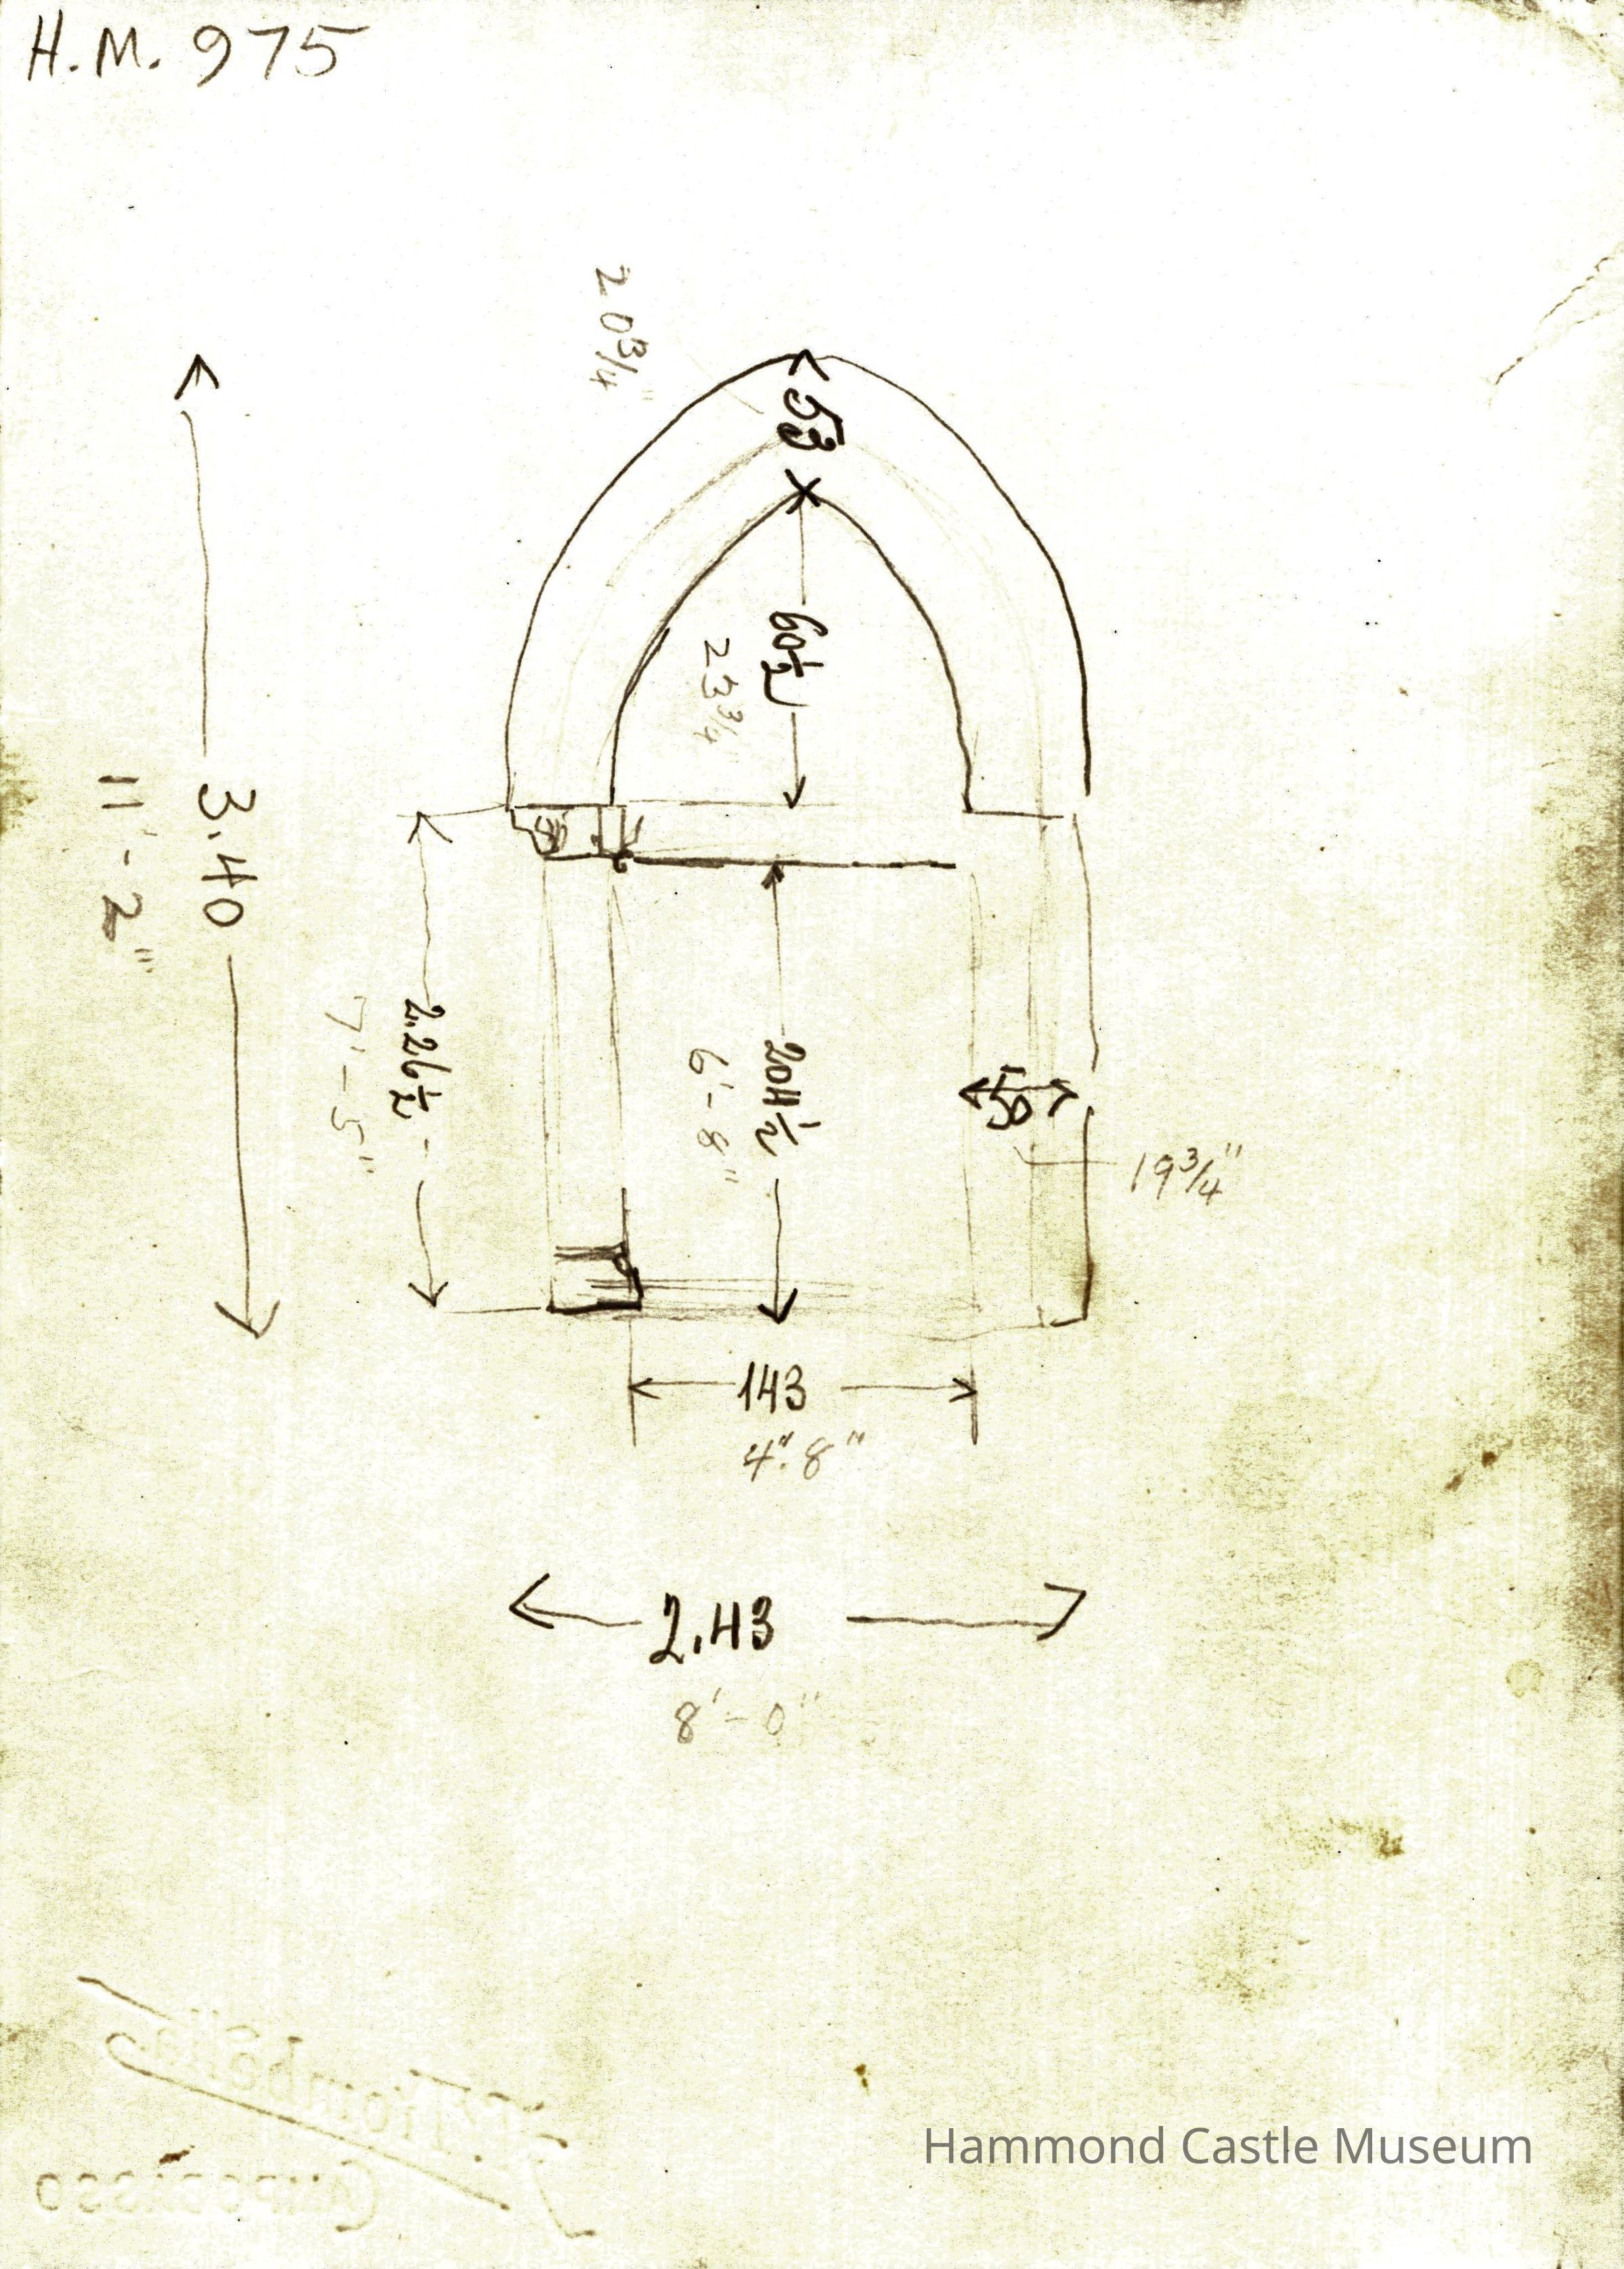 H.M. 975
20 3/4"
53
60 1/2
23 3/4"
3.40
11'-2"
2.26 1/2
7'-5"
204 1/2
6'-8"
50
19 3/4"
143
4".8"
2.43
8'-0"
Hammond Castle Museum